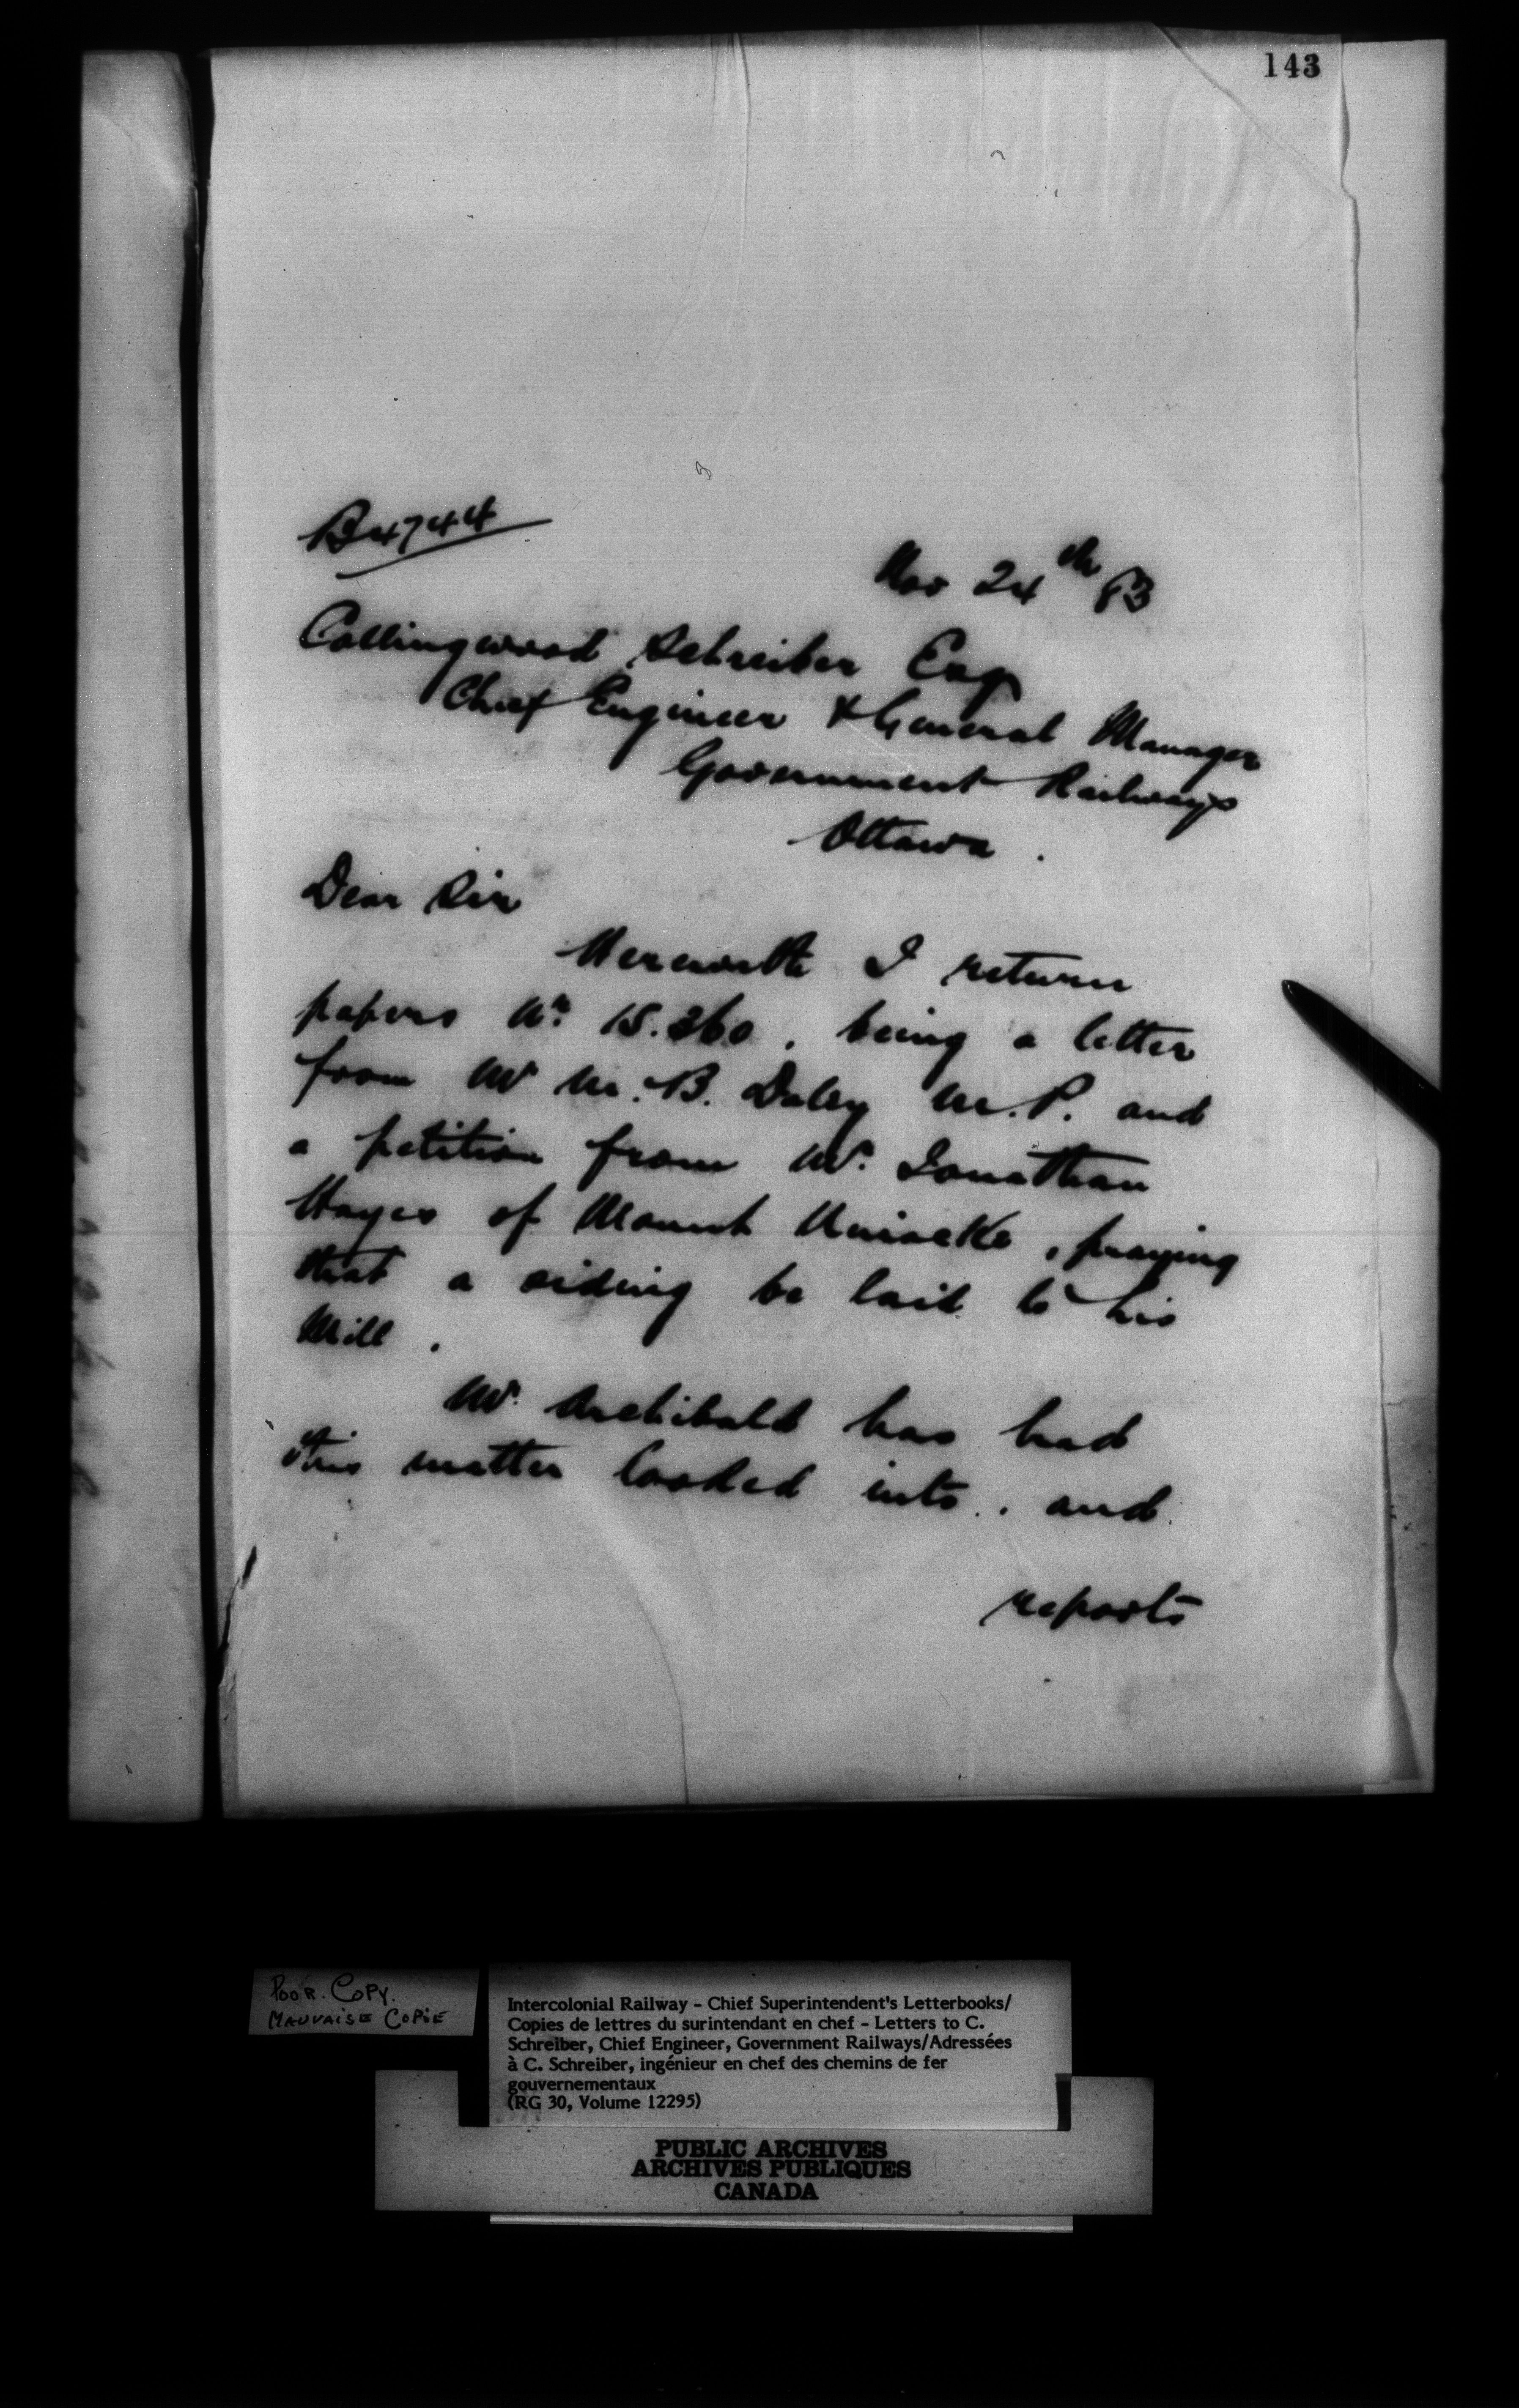 143
B4744
Nov 24th 83
Collingwood Schreiber Esq
Chief Engineer & General Manager
Government Railways
Ottawa.
Dear Sir
Herewith I return
papers No. 15.360, being a letter
from Mr M. B. Daley M.P. and
a petition from Mr. Jonathan
Hayes of Mount Uniacke, praying
that a siding be laid to his
Mill.
Mr. Archibald has had
this matter looked into, and
reports
POOR. COPY.
MAUVAISE COPIE
Intercolonial Railway - Chief Superintendent's Letterbooks/
Copies de lettres du surintendant en chef - Letters to C.
Schreiber, Chief Engineer, Government Railways/Adressées
à C. Schreiber, ingénieur en chef des chemins de fer
gouvernementaux
(RG 30, Volume 12295)
PUBLIC ARCHIVES
ARCHIVES PUBLIQUES
CANADA